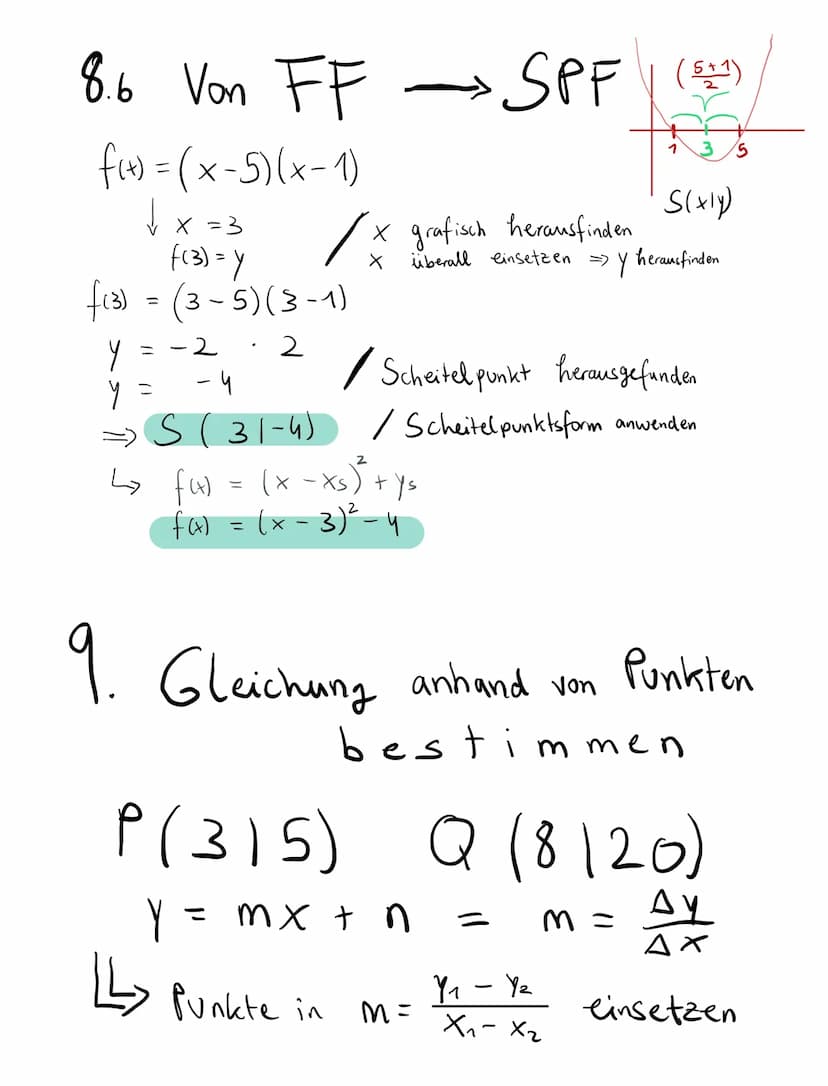 8.6 Von FF → SPF
(5+1/2)
1 3 5
S(x|y)
f(x) = (x-5)(x-1)
↓ x = 3 / x grafisch herausfinden
f(3) = y x überall einsetzen ⇒ y herausfinden
f(3) = (3-5)(3-1)
y = -2 · 2
y = -4 / Scheitelpunkt herausgefunden
⇒ S(3|-4) / Scheitelpunktsform anwenden
↳ f(x) = (x - xs)² + ys
f(x) = (x - 3)² - 4
9. Gleichung anhand von Punkten
bestimmen
P(3|5) Q(8|20)
y = mx + n = m = Δy/Δx
↳ Punkte in m = y₁ - y₂ / x₁ - x₂ einsetzen